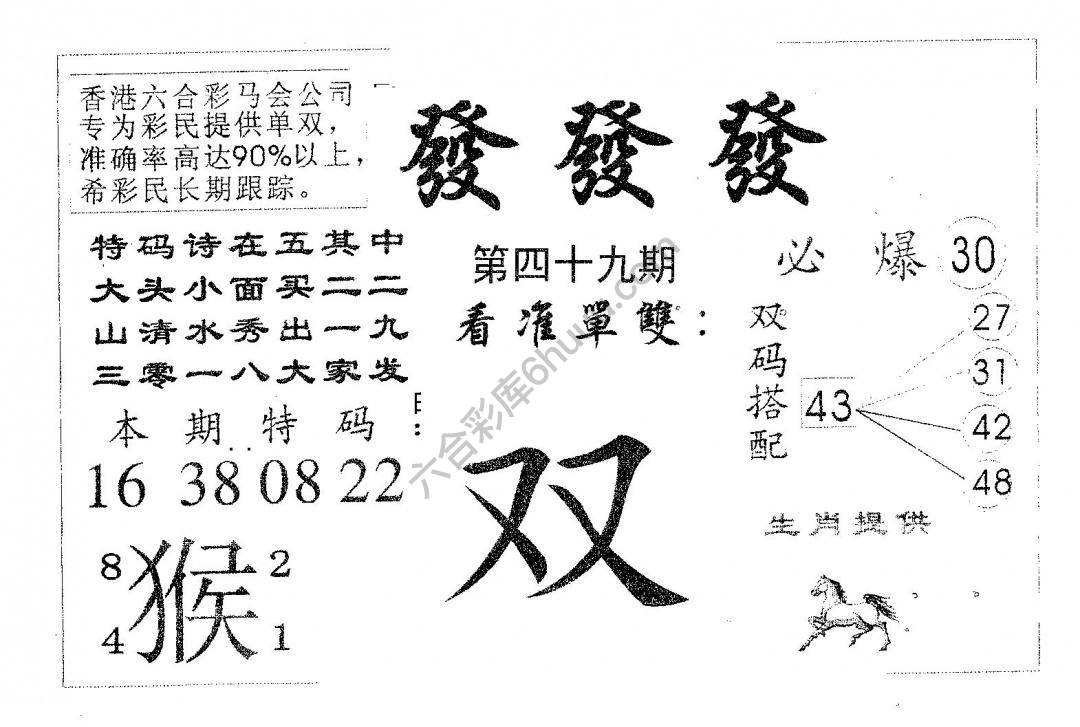 香港六合彩马会公司
专为彩民提供单双，
准确率高达90%以上，
希彩民长期跟踪。
發發發
特码诗在五其中
大头小面买二二
山清水秀出一九
三零一八大家发
第四十九期
看准單雙：
必爆30
双码搭配
43
27
31
42
48
本期特码：
16 38 08 22
双
8 2
猴
4 1
生肖提供
六合彩库6huu.com